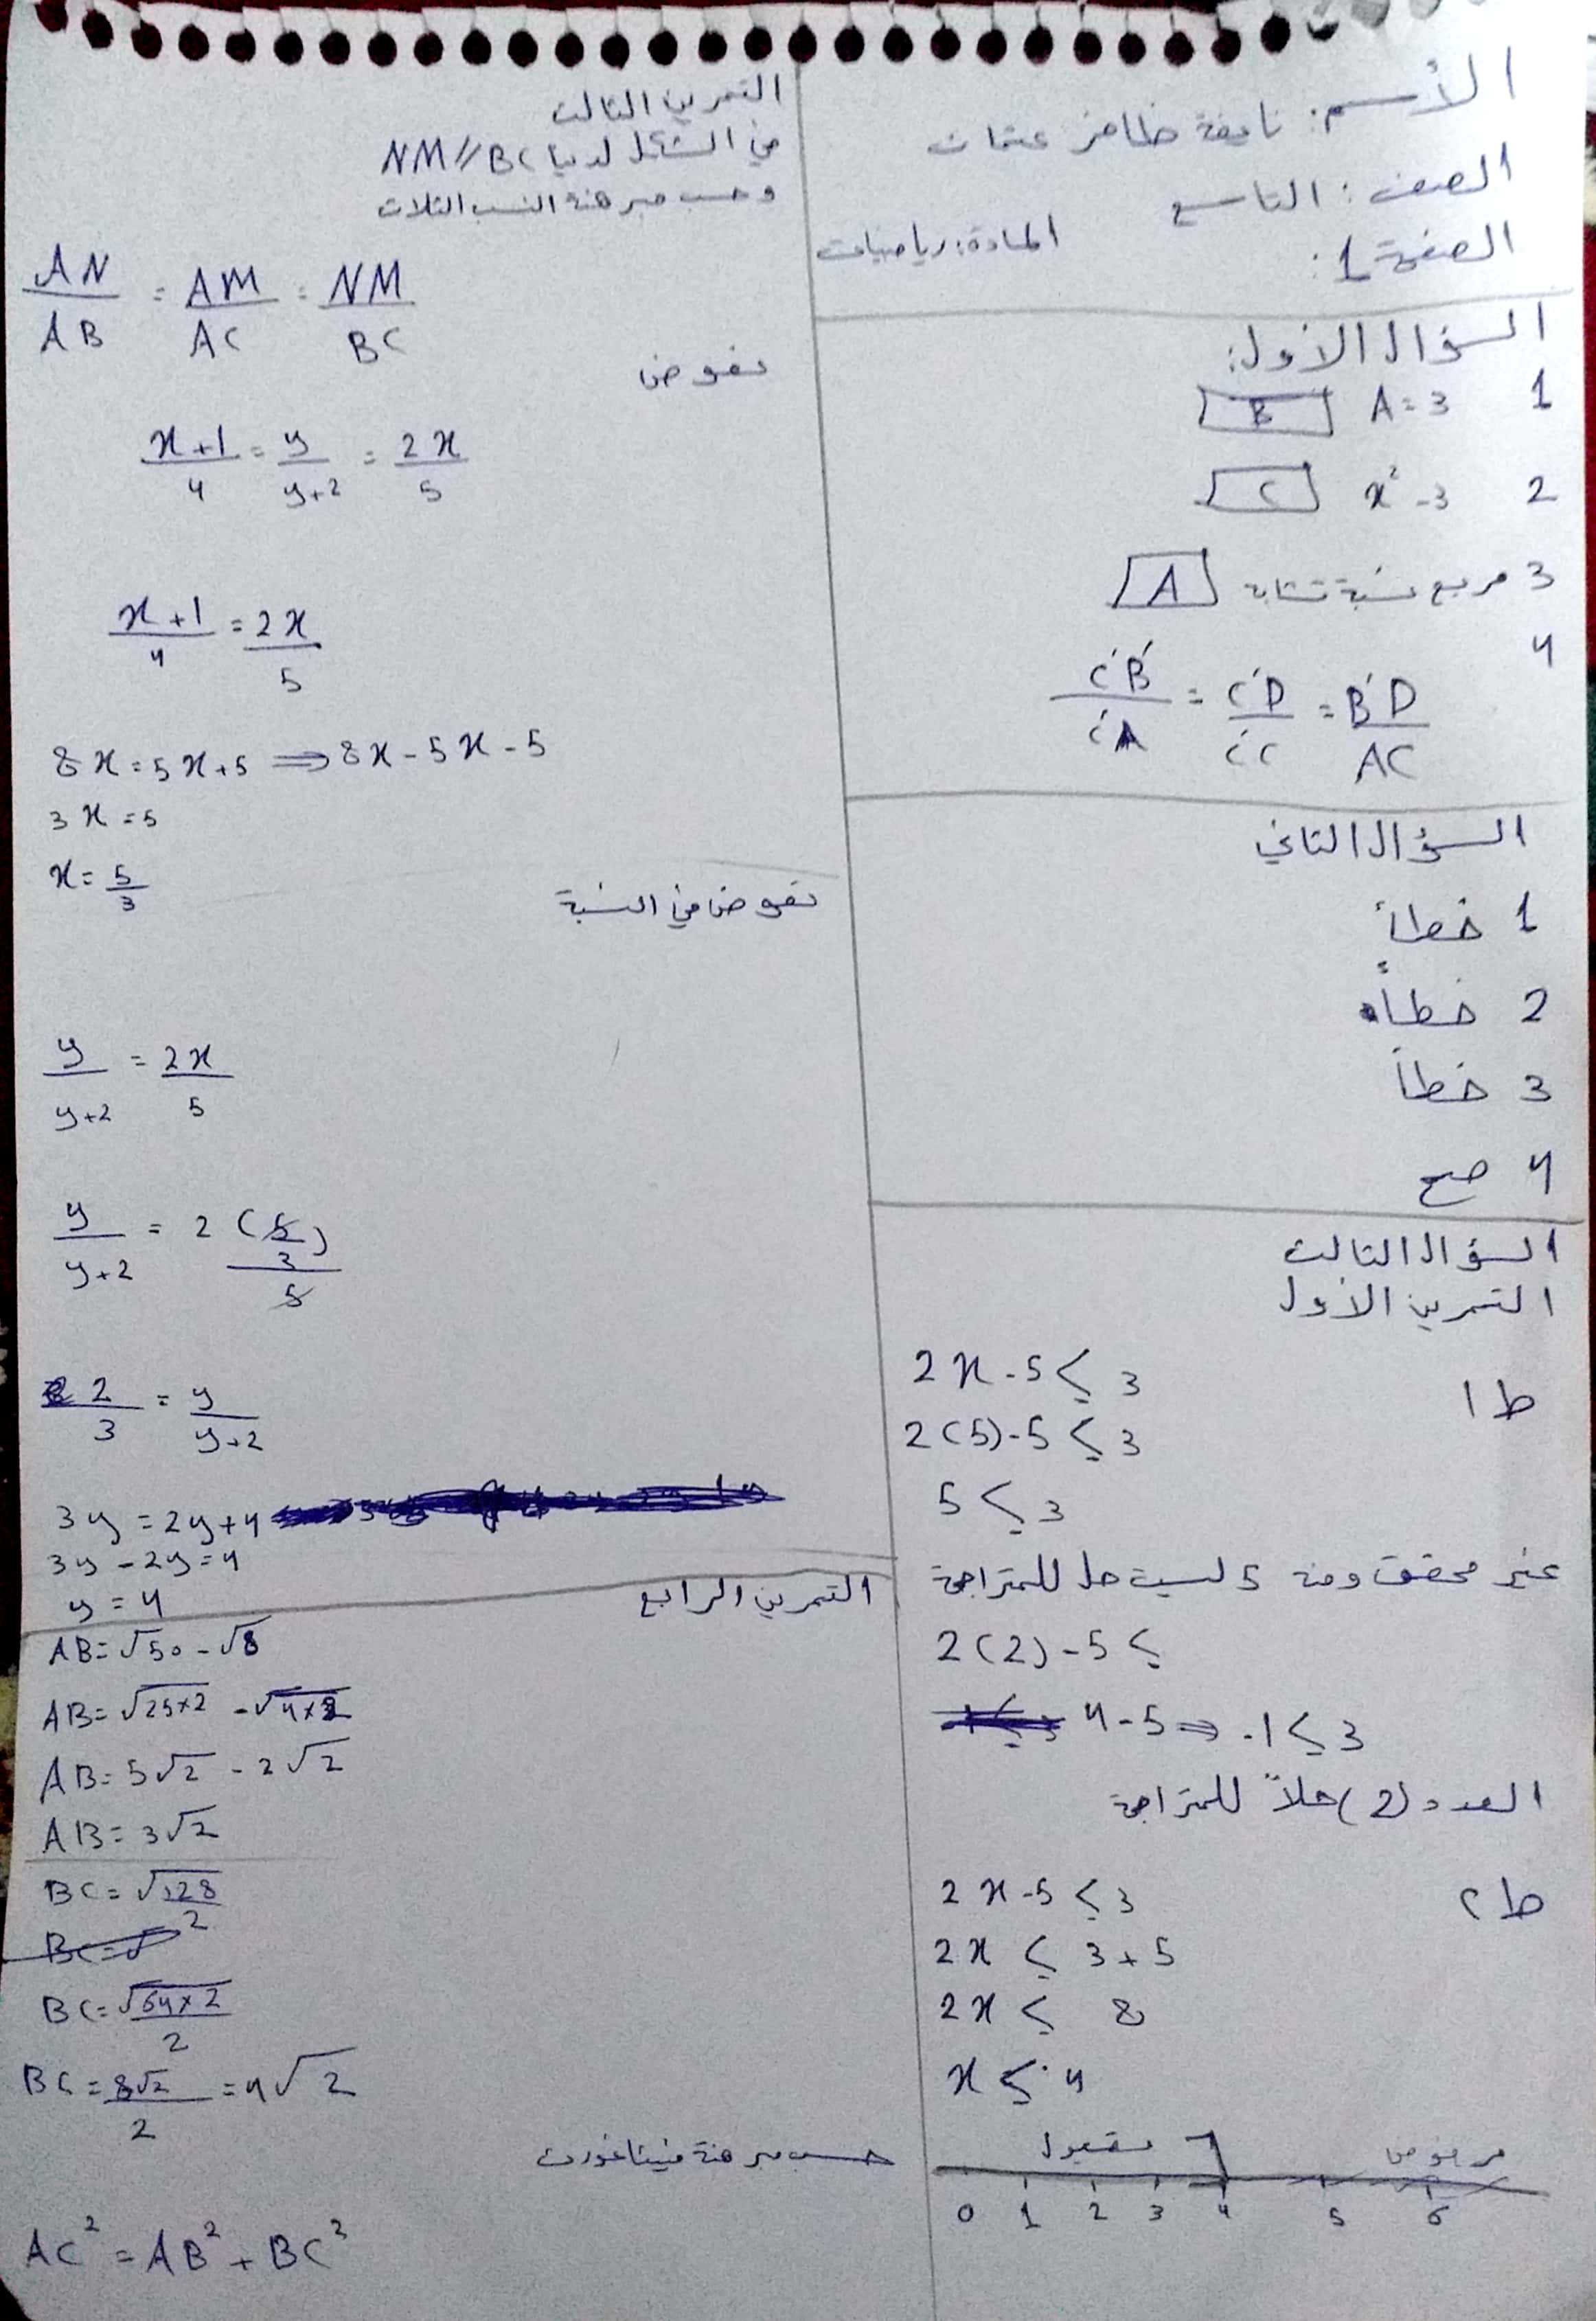 الأسم: نايفة ظاهر عثمان
الصف: التاسع
المادة: رياضيات
الصفحة 1:
السؤال الأول:
1 A = 3 B
2 x² - 3 C
3 مربع نسبة تشابه A
4
C'B'/C'A = C'D/C'C = B'D/AC
السؤال الثاني
1 خطأ
2 خطأ
3 خطأ
4 صح
السؤال الثالث
التمرين الأول
ط1 2x - 5 ≤ 3
2(5) - 5 ≤ 3
5 ≤ 3
غير محقق ومنه 5 ليست حل للمتراجحة
2(2) - 5 ≤
4 - 5 ⇒ -1 ≤ 3
العدد (2) حلاً للمتراجحة
ط2 2x - 5 ≤ 3
2x ≤ 3 + 5
2x ≤ 8
x ≤ 4
مقبول مرفوض
0 1 2 3 4 5 6
التمرين الثالث
في الشكل لدينا NM // BC
وحسب مبرهنة النسب الثلاث
AN/AB = AM/AC = NM/BC
نعوض
x+1/4 = y/y+2 = 2x/5
x+1/4 = 2x/5
8x = 5x+5 ⇒ 8x - 5x - 5
3x = 5
x = 5/3
نعوض في النسبة
y/y+2 = 2x/5
y/y+2 = 2(5/3)/5
2/3 = y/y+2
3y = 2y+4
3y - 2y = 4
y = 4
التمرين الرابع
AB = √50 - √8
AB = √25×2 - √4×2
AB = 5√2 - 2√2
AB = 3√2
BC = √128/2
BC = √64×2/2
BC = 8√2/2 = 4√2
حسب مبرهنة فيثاغورث
AC² = AB² + BC²